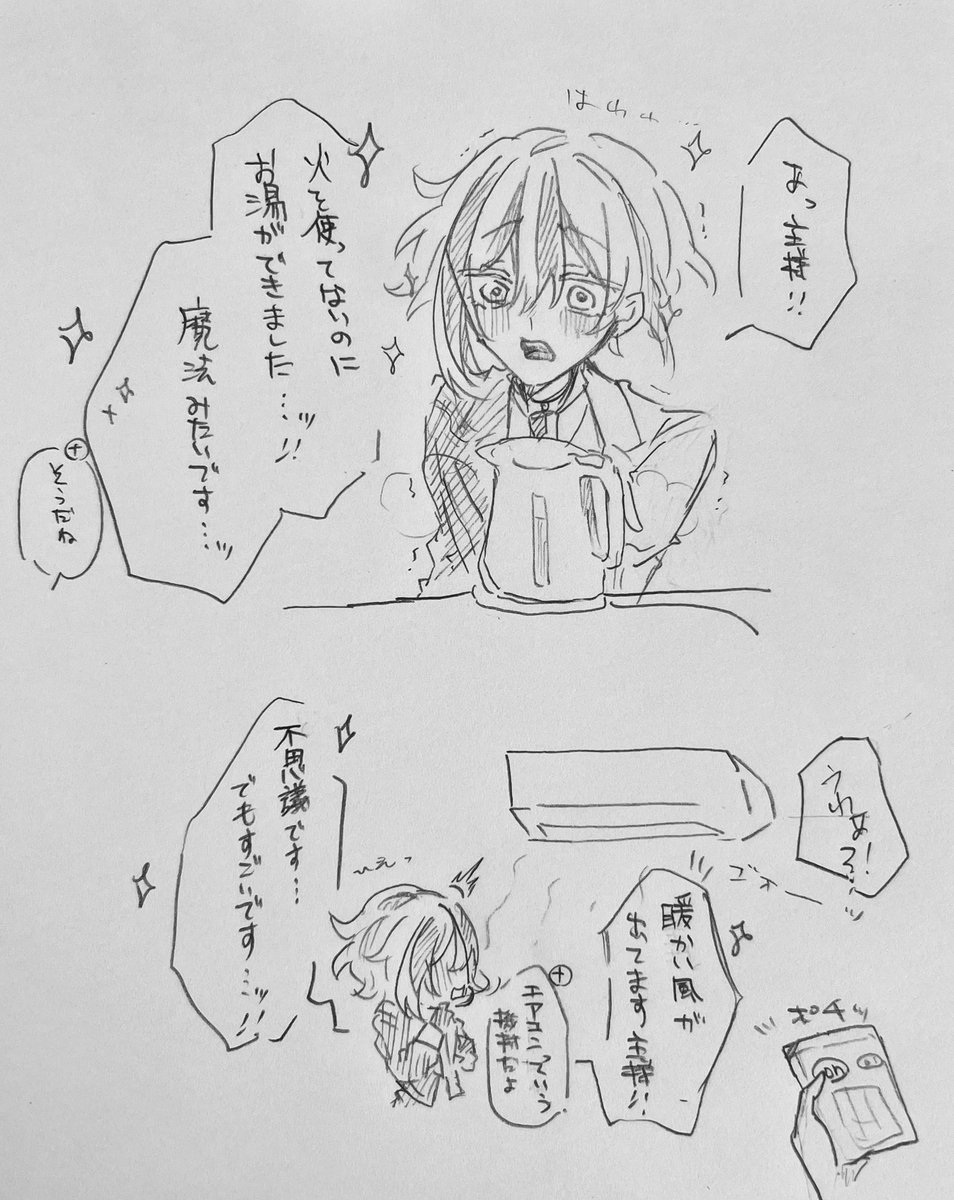 はわわ…
あっ主様!!
火を使ってないのに
お湯ができました…!!
魔法みたいです…!!
そうだね
ゴォー
暖かい風が
出てます主様!!
エアコンっていう
機材だよ
ひえっ
不思議です…
でもすごいです…!!
ポチ